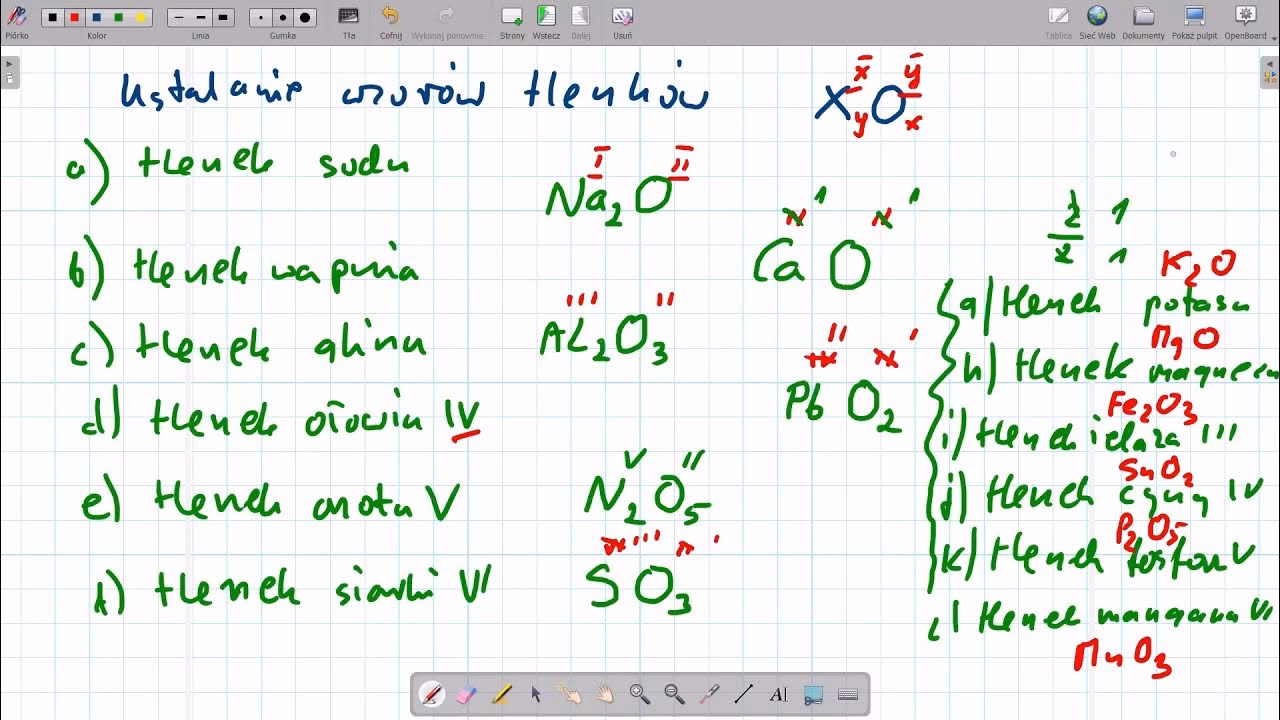 Piórko Kolor Linia Gumka Tła Cofnij Wykonaj ponownie Strony Wstecz Dalej Usuń Tablica Sieć Web Dokumenty Pokaż pulpit OpenBoard
Ustalanie wzorów tlenków
X O x y y x
a) tlenek sodu
Na₂O I II
b) tlenek wapnia
CaO 1 1
2 1
2 1
c) tlenek glinu
Al₂O₃ III II
d) tlenek ołowiu IV
PbO₂ II I
e) tlenek azotu V
N₂O₅ V II
f) tlenek siarki VI
SO₃ III I
K₂O
g) tlenek potasu
MgO
h) tlenek magnezu
Fe₂O₃
i) tlenek żelaza III
SnO₂
j) tlenek cyny IV
P₂O₅
k) tlenek fosforu V
l) tlenek manganu VI
MnO₃
AI